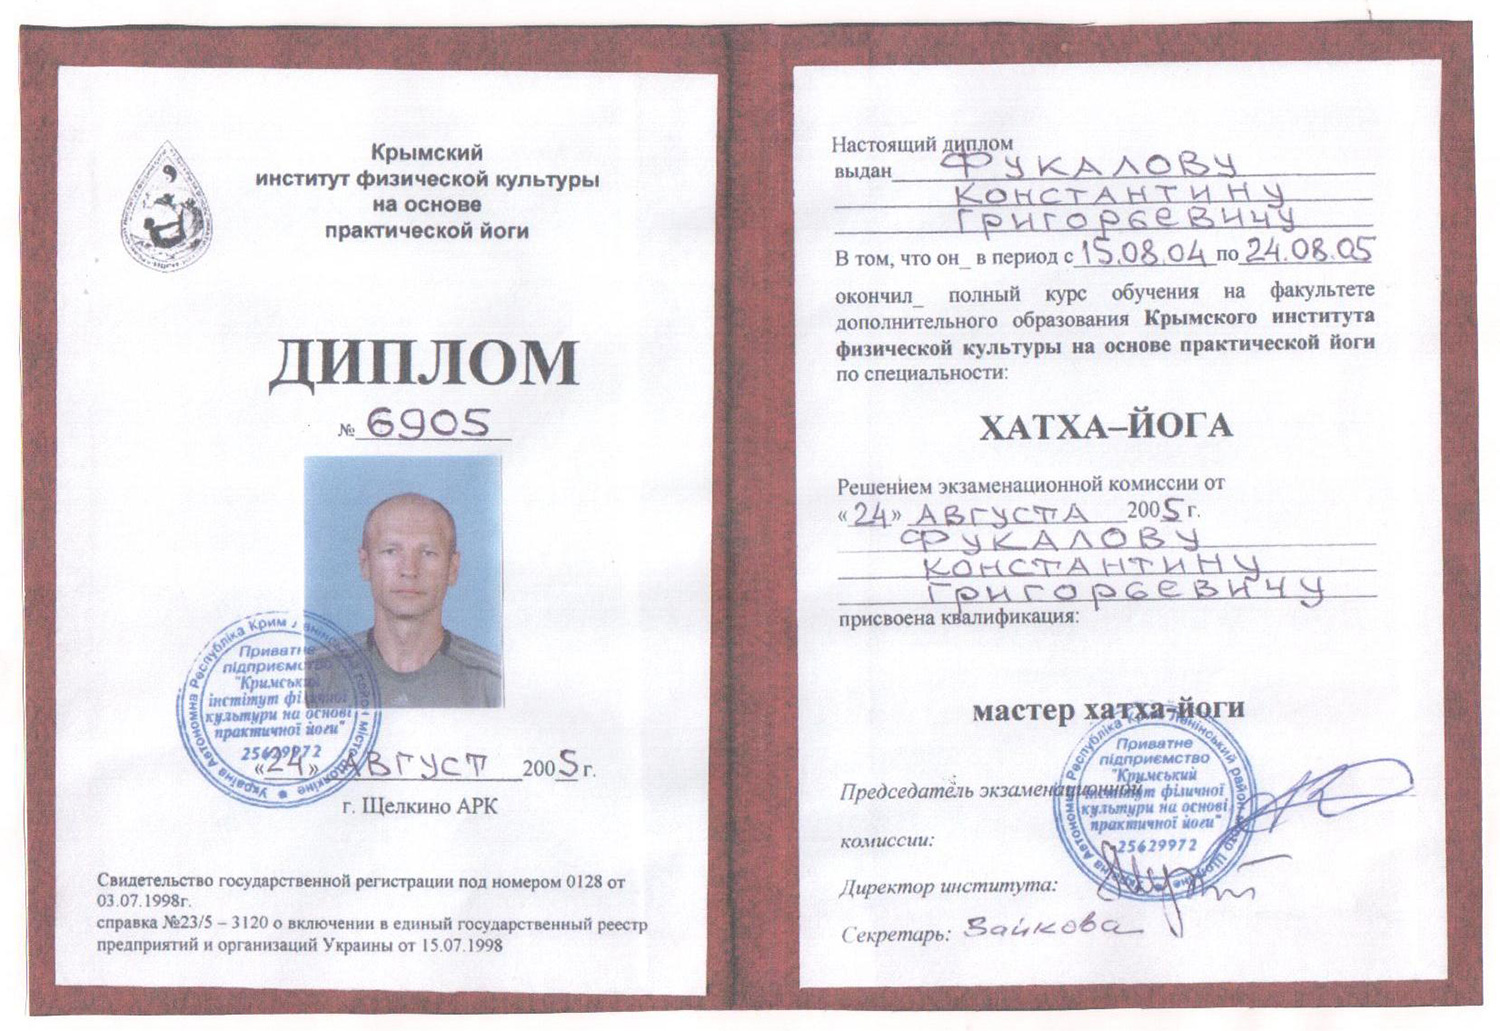 Крымский
институт физической культуры
на основе
практической йоги
ДИПЛОМ
№ 6905
Приватне
підприємство
"Кримський
інститут фізичної
культури на основі
практичної йоги"
25629972
«24» АВГУСТ 2005 г.
г. Щелкино АРК
Свидетельство государственной регистрации под номером 0128 от
03.07.1998г.
справка №23/5 – 3120 о включении в единый государственный реестр
предприятий и организаций Украины от 15.07.1998
Настоящий диплом
выдан ФУКАЛОВУ
КОНСТАНТИНУ
ГРИГОРЬЕВИЧУ
В том, что он_ в период с 15.08.04 по 24.08.05
окончил_ полный курс обучения на факультете
дополнительного образования Крымского института
физической культуры на основе практической йоги
по специальности:
ХАТХА–ЙОГА
Решением экзаменационной комиссии от
«24» АВГУСТА 2005 г.
ФУКАЛОВУ
КОНСТАНТИНУ
ГРИГОРЬЕВИЧУ
присвоена квалификация:
мастер хатха-йоги
Приватне
підприємство
"Кримський
інститут фізичної
культури на основі
практичної йоги"
25629972
Председатель экзаменационной
комиссии:
Директор института:
Секретарь: Зайкова